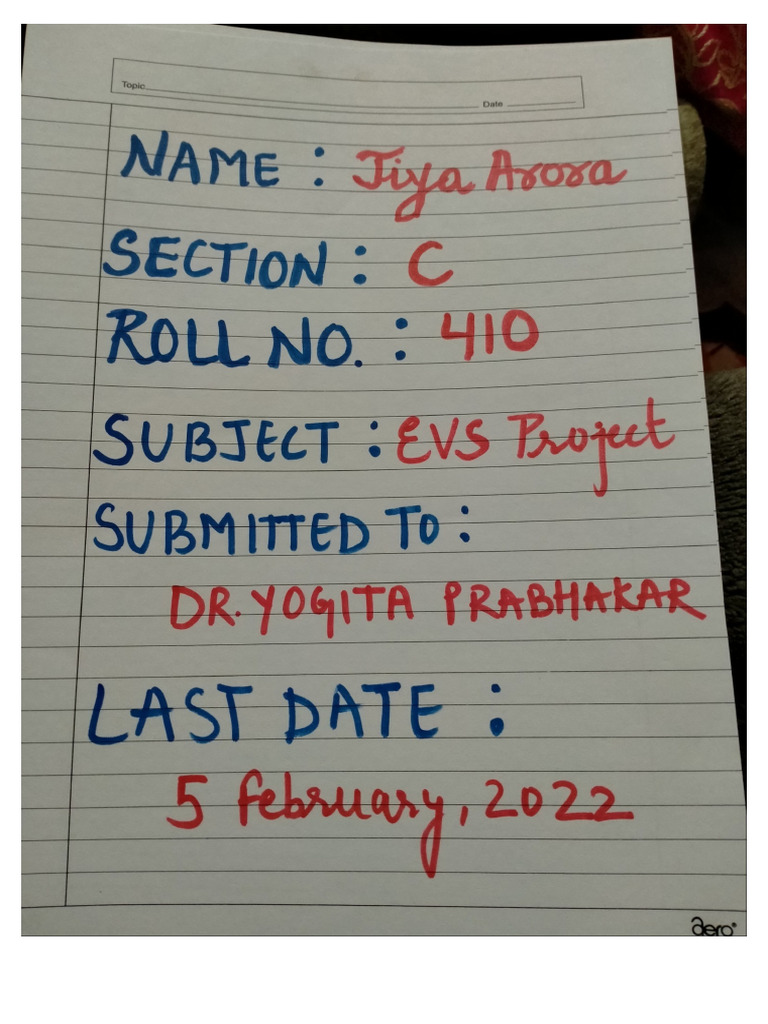 Topic
Date
NAME : Jiya Arora
SECTION : C
ROLL NO. : 410
SUBJECT : EVS Project
SUBMITTED TO :
DR. YOGITA PRABHAKAR
LAST DATE :
5 february, 2022
aero